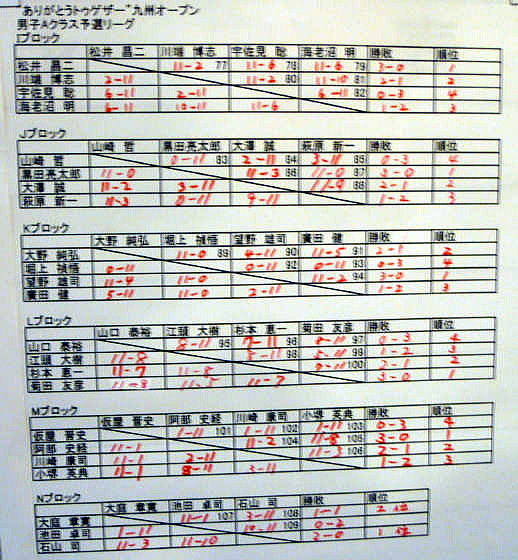 "ありがとうトゥゲザー"九州オープン
男子Aクラス予選リーグ
Iブロック
松井 昌二 川端 博志 宇佐見 聡 海老沼 明 勝敗 順位
松井 昌二 11-2 77 11-6 78 11-6 79 3-0 1
川端 博志 2-11 11-2 80 11-10 81 2-1 2
宇佐見 聡 6-11 2-11 6-11 82 0-3 4
海老沼 明 6-11 10-11 11-6 1-2 3
Jブロック
山崎 哲 黒田亮太郎 大澤 誠 萩原 新一 勝敗 順位
山崎 哲 0-11 83 2-11 84 3-11 85 0-3 4
黒田亮太郎 11-0 11-3 86 11-0 87 3-0 1
大澤 誠 11-2 3-11 11-9 88 2-1 2
萩原 新一 11-3 0-11 9-11 1-2 3
Kブロック
大野 純弘 堀上 禎悟 望野 雄司 廣田 健 勝敗 順位
大野 純弘 11-0 89 4-11 90 11-5 91 2-1 2
堀上 禎悟 0-11 0-11 92 0-11 93 0-3 4
望野 雄司 11-4 11-0 11-2 94 3-0 1
廣田 健 5-11 11-0 2-11 1-2 3
Lブロック
山口 泰裕 江頭 大樹 杉本 恵一 菊田 友彦 勝敗 順位
山口 泰裕 8-11 95 7-11 96 8-11 97 0-3 4
江頭 大樹 11-8 8-11 98 5-11 99 1-2 3
杉本 恵一 11-7 11-8 100 2-1 2
菊田 友彦 11-8 11-5 11-7 3-0 1
Mブロック
仮屋 晋史 阿部 史経 川崎 康司 小堺 英典 勝敗 順位
仮屋 晋史 1-11 101 1-11 102 1-11 103 0-3 4
阿部 史経 11-1 11-2 104 11-8 105 3-0 1
川崎 康司 11-1 2-11 11-3 106 2-1 2
小堺 英典 11-1 8-11 3-11 1-2 3
Nブロック
大庭 章寛 池田 卓司 石山 司 勝敗 順位
大庭 章寛 11-1 107 3-11 108 1-1 2位
池田 卓司 1-11 10-11 109 0-2
石山 司 11-3 11-10 2-0 1位